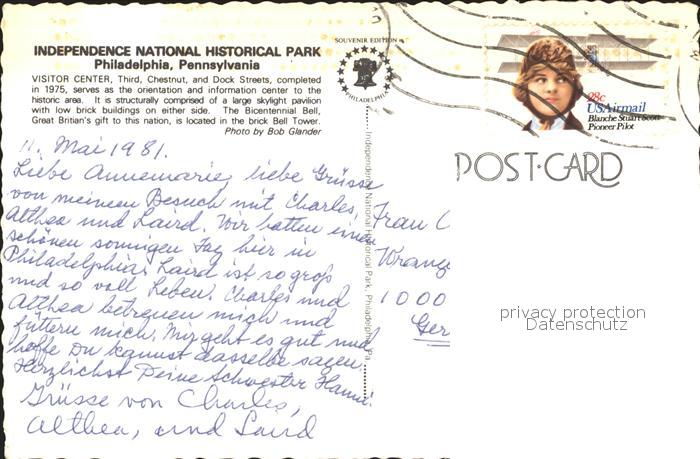 SOUVENIR EDITION
PHILADELPHIA
INDEPENDENCE NATIONAL HISTORICAL PARK
Philadelphia, Pennsylvania
VISITOR CENTER, Third, Chestnut, and Dock Streets, completed
in 1975, serves as the orientation and information center to the
historic area. It is structurally comprised of a large skylight pavilion
with low brick buildings on either side. The Bicentennial Bell,
Great Britian's gift to this nation, is located in the brick Bell Tower.
Photo by Bob Glander
28c
USAirmail
Blanche Stuart Scott
Pioneer Pilot
POST·CARD
11. Mai 1981.
Liebe Annemarie, liebe Grüsse
von meinem Besuch mit Charles,
Althea und Laird. Wir hatten einen
schönen sonnigen Tag hier in
Philadelphia. Laird ist so groß
und so voll Leben. Charles und
Althea betreuen mich und
füttern mich. Mir geht es gut und
hoffe Du kannst dasselbe sagen.
Herzlichst Deine Schwester Hanni.
Grüsse von Charles,
Althea, and Laird
Independence National Historical Park, Philadelphia, Pa.
Frau
Wrang
1000
Ger
privacy protection
Datenschutz